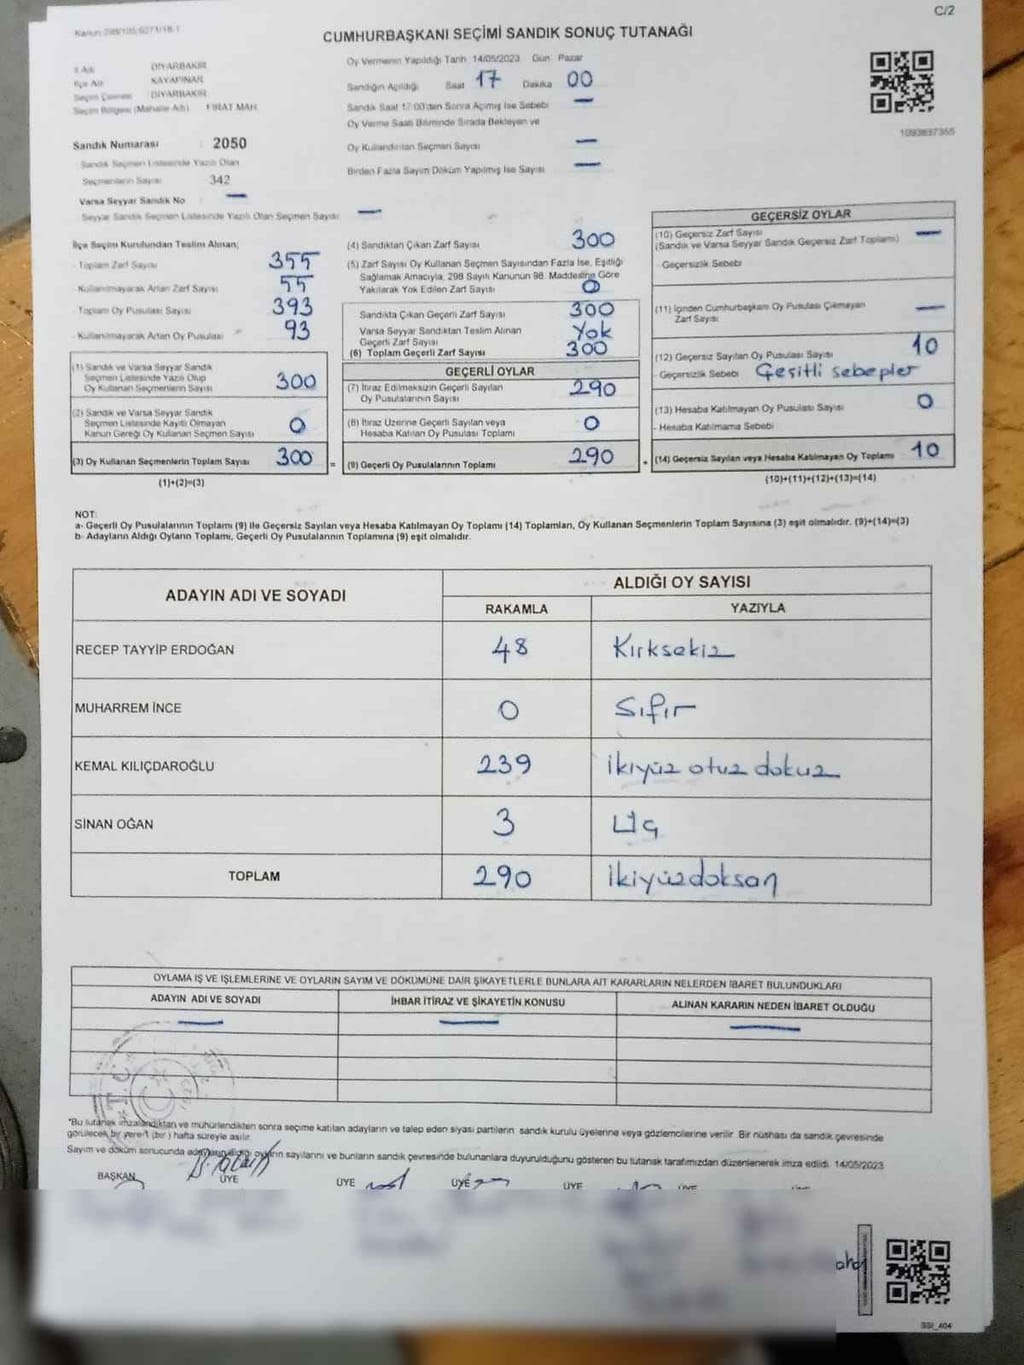 C/2
CUMHURBAŞKANI SEÇİMİ SANDIK SONUÇ TUTANAĞI
İl Adı DİYARBAKIR
İlçe Adı KAYAPINAR
Seçim Çevresi DİYARBAKIR
Seçim Bölgesi (Mahalle Adı) FIRAT MAH.
Sandık Numarası 2050
Sandık Seçmen Listesinde Yazılı Olan
Seçmenlerin Sayısı 342
Varsa Seyyar Sandık No —
Seyyar Sandık Seçmen Listesinde Yazılı Olan Seçmen Sayısı —
Oy Vermenin Yapıldığı Tarih 14/05/2023 Gün Pazar
Sandığın Açıldığı Saat 17 Dakika 00
Sandık Saat 17:00'den Sonra Açılmış İse Sebebi —
Oy Verme Saati Bitiminde Sırada Bekleyen ve
Oy Kullandırılan Seçmen Sayısı —
Birden Fazla Sayım Döküm Yapılmış İse Sayısı —
1093837355
İlçe Seçim Kurulundan Teslim Alınan;
- Toplam Zarf Sayısı 355
- Kullanılmayarak Artan Zarf Sayısı 55
- Toplam Oy Pusulası Sayısı 393
- Kullanılmayarak Artan Oy Pusulası 93
(1) Sandık ve Varsa Seyyar Sandık
Seçmen Listesinde Yazılı Olup
Oy Kullanan Seçmenlerin Sayısı 300
(2) Sandık ve Varsa Seyyar Sandık
Seçmen Listesinde Kayıtlı Olmayan
Kanun Gereği Oy Kullanan Seçmen Sayısı 0
(3) Oy Kullanan Seçmenlerin Toplam Sayısı 300 =
(1)+(2)=(3)
(4) Sandıktan Çıkan Zarf Sayısı 300
(5) Zarf Sayısı Oy Kullanan Seçmen Sayısından Fazla İse, Eşitliği
Sağlamak Amacıyla, 298 Sayılı Kanunun 98. Maddesine Göre
Yakılarak Yok Edilen Zarf Sayısı 0
Sandıkta Çıkan Geçerli Zarf Sayısı 300
Varsa Seyyar Sandıktan Teslim Alınan
Geçerli Zarf Sayısı Yok
(6) Toplam Geçerli Zarf Sayısı 300
GEÇERLİ OYLAR
(7) İtiraz Edilmeksizin Geçerli Sayılan
Oy Pusulalarının Sayısı 290
(8) İtiraz Üzerine Geçerli Sayılan veya
Hesaba Katılan Oy Pusulası Toplamı 0
(9) Geçerli Oy Pusulalarının Toplamı 290
GEÇERSİZ OYLAR
(10) Geçersiz Zarf Sayısı —
(Sandık ve Varsa Seyyar Sandık Geçersiz Zarf Toplamı)
- Geçersizlik Sebebi
(11) İçinden Cumhurbaşkanı Oy Pusulası Çıkmayan
Zarf Sayısı —
(12) Geçersiz Sayılan Oy Pusulası Sayısı 10
- Geçersizlik Sebebi Çeşitli sebepler
(13) Hesaba Katılmayan Oy Pusulası Sayısı 0
- Hesaba Katılmama Sebebi
(14) Geçersiz Sayılan veya Hesaba Katılmayan Oy Toplamı 10
(10)+(11)+(12)+(13)=(14)
NOT:
a- Geçerli Oy Pusulalarının Toplamı (9) ile Geçersiz Sayılan veya Hesaba Katılmayan Oy Toplamı (14) Toplamları, Oy Kullanan Seçmenlerin Toplam Sayısına (3) eşit olmalıdır. (9)+(14)=(3)
b- Adayların Aldığı Oyların Toplamı, Geçerli Oy Pusulalarının Toplamına (9) eşit olmalıdır.
ADAYIN ADI VE SOYADI
ALDIĞI OY SAYISI
RAKAMLA YAZIYLA
RECEP TAYYİP ERDOĞAN 48 Kırksekiz
MUHARREM İNCE 0 Sıfır
KEMAL KILIÇDAROĞLU 239 ikiyüz otuz dokuz
SİNAN OĞAN 3 Üç
TOPLAM 290 ikiyüzdoksan
OYLAMA İŞ VE İŞLEMLERİNE VE OYLARIN SAYIM VE DÖKÜMÜNE DAİR ŞİKAYETLERLE BUNLARA AİT KARARLARIN NELERDEN İBARET BULUNDUKLARI
ADAYIN ADI VE SOYADI İHBAR İTİRAZ VE ŞİKAYETİN KONUSU ALINAN KARARIN NEDEN İBARET OLDUĞU
— — —
T.C.
*Bu tutanak imzalandıktan ve mühürlendikten sonra seçime katılan adayların ve talep eden siyasi partilerin sandık kurulu üyelerine veya gözlemcilerine verilir. Bir nüshası da sandık çevresinde
görülecek bir yere 1 (bir) hafta süreyle asılır.
Sayım ve döküm sonucunda adayların aldığı oyların sayılarını ve bunların sandık çevresinde bulunanlara duyurulduğunu gösteren bu tutanak tarafımızdan düzenlenerek imza edildi. 14/05/2023
BAŞKAN ÜYE ÜYE ÜYE ÜYE ÜYE
SSİ_404